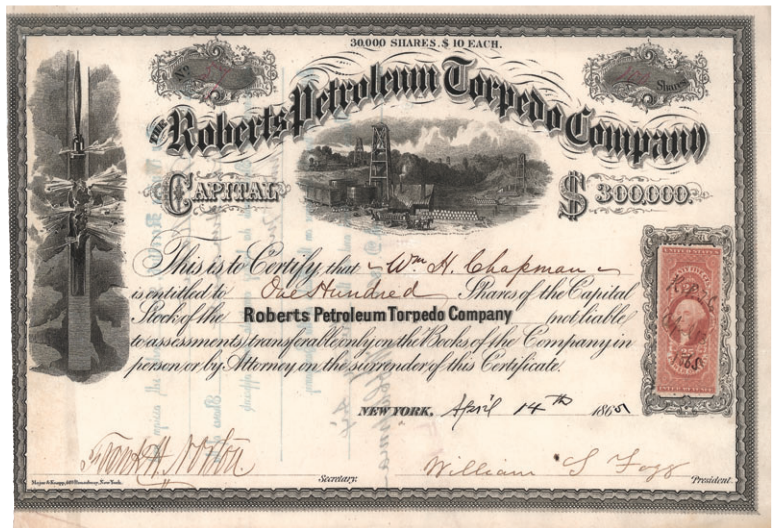 30,000 SHARES. $10 EACH.
No 57
100 Shares
THE Roberts Petroleum Torpedo Company
CAPITAL $300,000.
This is to Certify, that Wm H. Chapman
is entitled to One Hundred Shares of the Capital
Stock of the Roberts Petroleum Torpedo Company not liable
to assessments, transferable only on the Books of the Company in
person or by Attorney on the surrender of this Certificate.
NEW YORK, April 14th 1865
Frank H. Norton
Secretary.
William S Fogg
President.
Major & Knapp, 449 Broadway, New York.